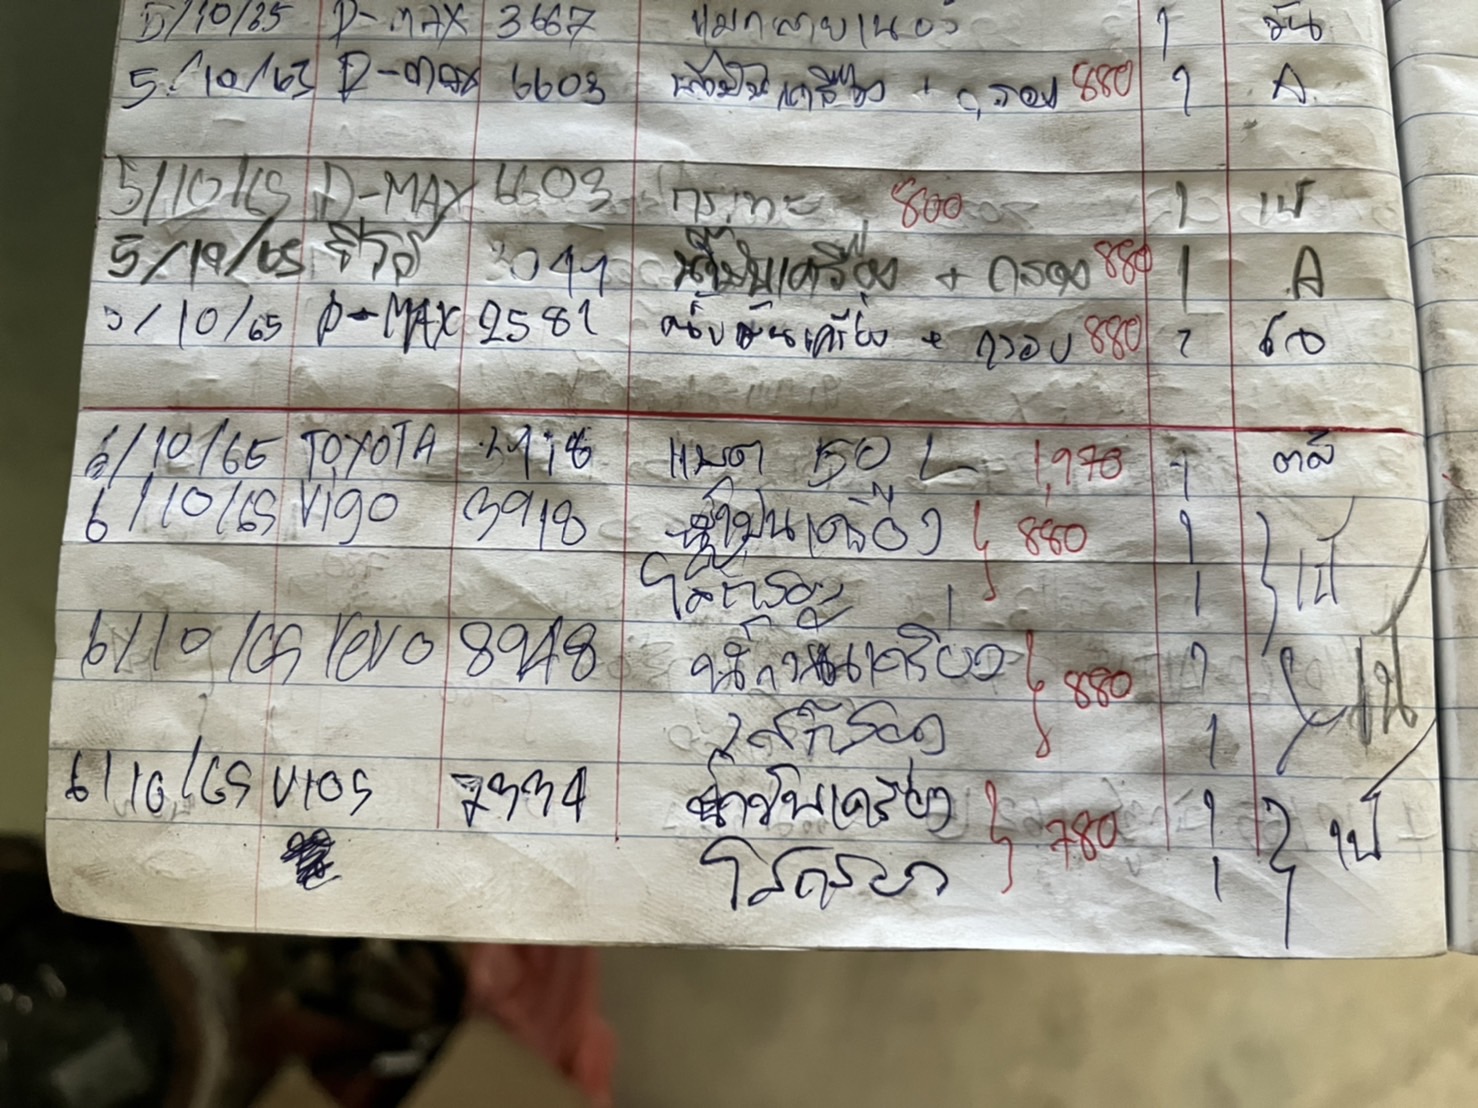 5/10/65 D-MAX 3667 1
5/10/65 D-MAX 6603 น้ำมันเครื่อง + กรอง 880 1 A
5/10/65 D-MAX 6603 กระทะ 800 1 เป้
5/10/65 รีโว่ 3044 น้ำมันเครื่อง + กรอง 880 1 A
5/10/65 D-MAX 2581 น้ำมันเครื่อง + กรอง 880 1
6/10/65 TOYOTA แบต 50 L 1,970 1
6/10/65 VIGO 3918 น้ำมันเครื่อง 880 1 เป้
ไส้กรอง 1
6/10/65 revo 8948 น้ำมันเครื่อง 880 1 เป้
ไส้กรอง 1
6/10/65 VIOS 7334 น้ำมันเครื่อง 780 1 เป้
ไส้กรอง 1